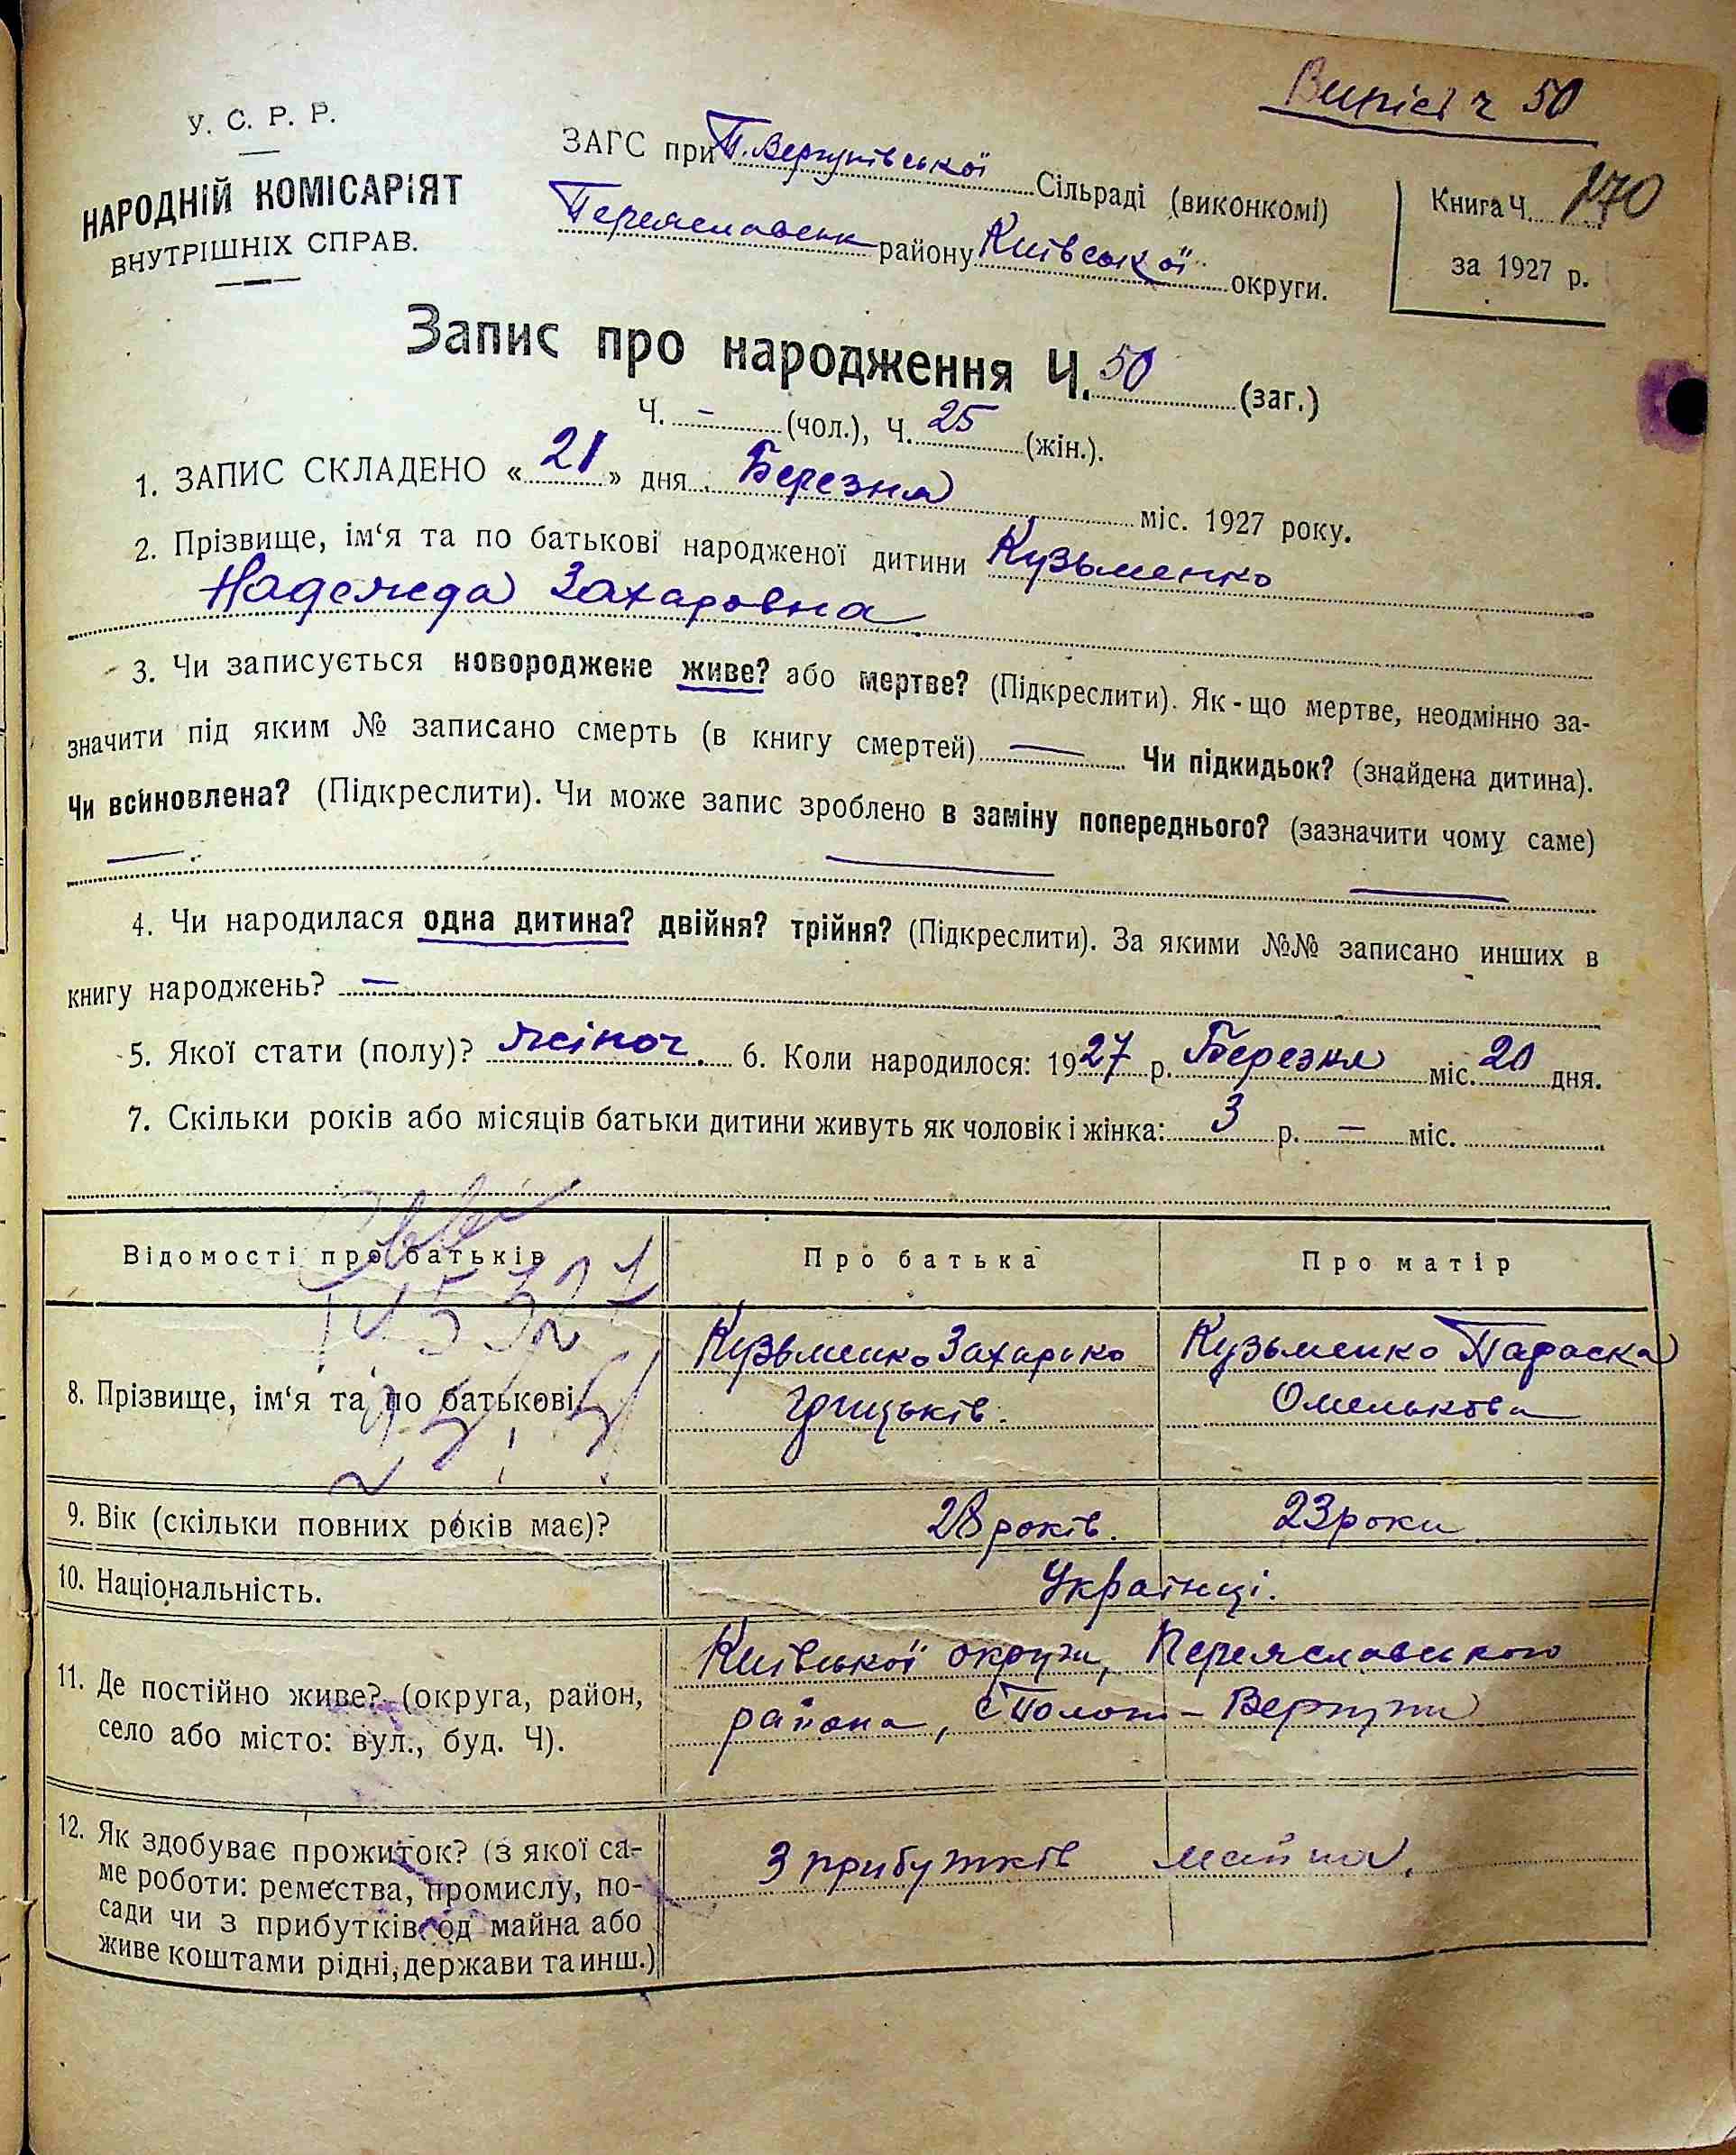 Випіс ч 50
У. С. Р. Р.
НАРОДНІЙ КОМІСАРІЯТ
ВНУТРІШНІХ СПРАВ.
ЗАГС при П. Вергунівської Сільраді (виконкомі)
Переяславськ району Київської округи.
Книга Ч. 170
за 1927 р.
Запис про народження Ч. 50 (заг.)
Ч. - (чол.), Ч. 25 (жін.).
1. ЗАПИС СКЛАДЕНО « 21 » дня Березня міс. 1927 року.
2. Прізвище, ім‘я та по батькові народженої дитини Кузьменко
Надежда Захаровна
3. Чи записується новороджене живе? або мертве? (Підкреслити). Як-що мертве, неодмінно за-
значити під яким № записано смерть (в книгу смертей) — Чи підкидьок? (знайдена дитина).
Чи всиновлена? (Підкреслити). Чи може запис зроблено в заміну попереднього? (зазначити чому саме)
— — —
4. Чи народилася одна дитина? двійня? трійня? (Підкреслити). За якими №№ записано инших в
книгу народжень? —
5. Якої стати (полу)? жіноч. 6. Коли народилося: 1927 р. Березня міс. 20 дня.
7. Скільки років або місяців батьки дитини живуть як чоловік і жінка: 3 р. — міс.
Відомості про батьків Про батька Про матір
8. Прізвище, ім‘я та по батькові Кузьменко Захарько Кузьменко Параска
Грицьків. Омелькова
9. Вік (скільки повних років має)? 28 років. 23 роки
10. Національність. Українці.
11. Де постійно живе? (округа, район, Київської округи, Переяславського
село або місто: вул., буд. Ч). района, с Полож - Вергуни
12. Як здобуває прожиток? (з якої са-
ме роботи: ремества, промислу, по- З прибутків майна.
сади чи з прибутків од майна або
живе коштами рідні, держави та инш.)